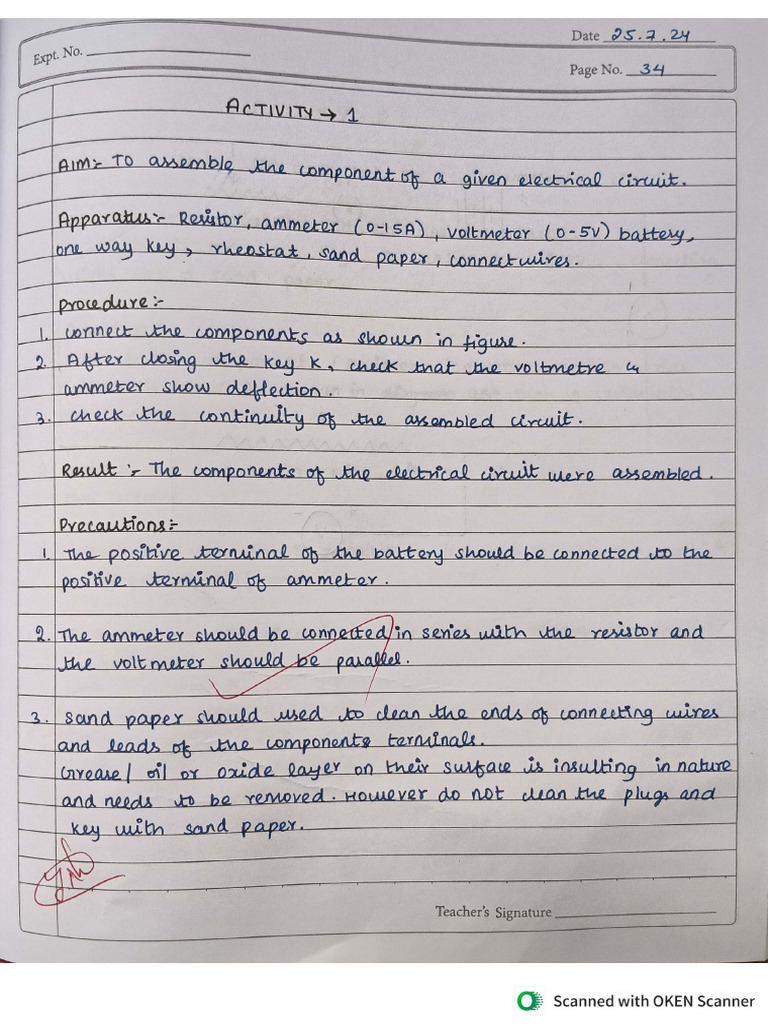 Date 25.7.24
Expt. No.
Page No. 34
ACTIVITY → 1
AIM:- TO assemble the component of a given electrical circuit.
Apparatus:- Resistor, ammeter (0-15A), voltmeter (0-5V) battery,
one way key, rheostat, sand paper, connect wires.
Procedure:-
1. connect the components as shown in figure.
2. After closing the key K, check that the voltmetre
ammeter show deflection.
3. check the continuity of the assembled circuit.
Result:- The components of the electrical circuit were assembled.
Precautions:-
1. The positive terminal of the battery should be connected to the
positive terminal of ammeter.
2. The ammeter should be connected in series with the resistor and
the voltmeter should be parallel.
3. Sand paper should used to clean the ends of connecting wires
and leads of the components terminals.
Grease/ oil or oxide layer on their surface is insulting in nature
and needs to be removed. However do not clean the plugs and
key with sand paper.
Teacher's Signature
Scanned with OKEN Scanner